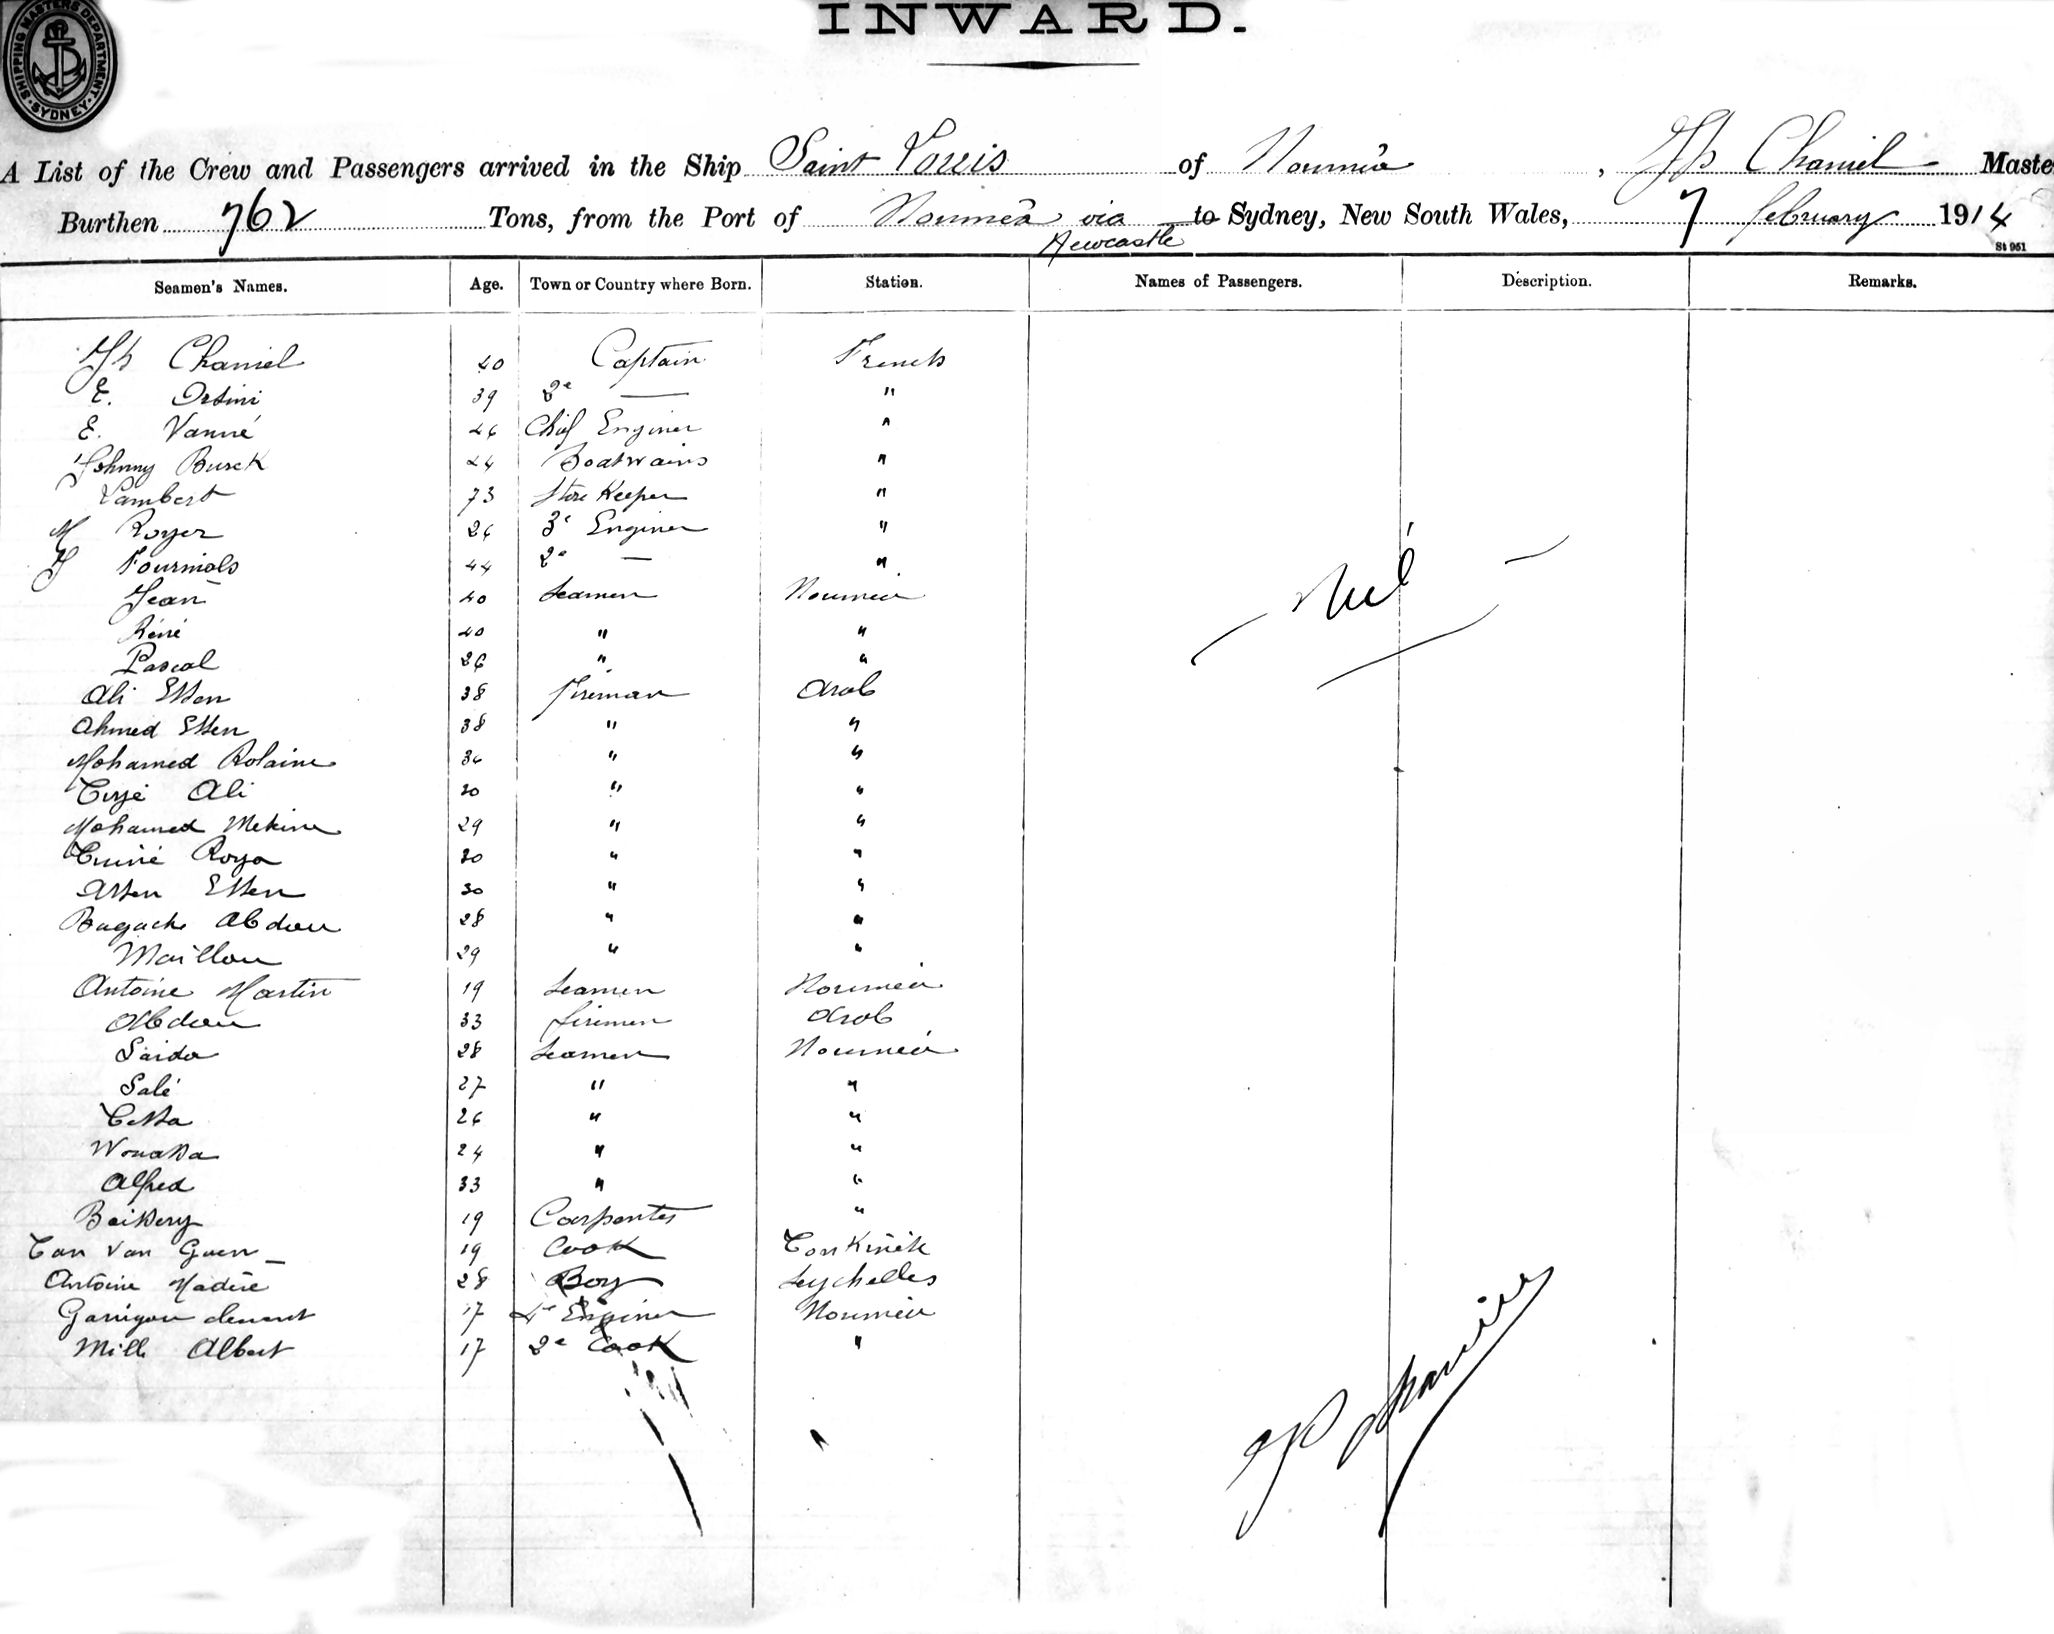 INWARD.
SHIPPING MASTERS DEPARTMENT · SYDNEY ·
A List of the Crew and Passengers arrived in the Ship Saint Louis of Nouméa, Jh Chaniel Maste
Burthen 762 Tons, from the Port of Nouméa via Newcastle to Sydney, New South Wales, 7 february 1914
St 951
Seamen's Names. Age. Town or Country where Born. Station. Names of Passengers. Description. Remarks.
Jh Chaniel 40 Captain French
E. Orsini 39 2e — "
E. Vanné 46 Chief Enginer "
Johnny Burck 24 Boatwains "
Lambert 73 Store Keeper "
M Royer 26 3e Enginer "
J Fourniols 44 2e — "
Jean 40 Seamen Nouméa
Réné 40 " "
Pascal 26 " "
Ali Essen 38 Fireman Arab
Ahmed Essen 38 " "
Mohamed Rolaine 36 " "
Ali 30 " "
Mohamed Mekine 29 " "
Roya 30 " "
Assen Essen 30 " "
Bagache Abdou 28 " "
Maillou 29 " "
Antoine Martin 19 Seamen Nouméa
Abdou 33 firemen Arab
Saida 28 Seamen Nouméa
Salé 27 " "
26 " "
24 " "
Alfred 33 " "
19 Carpenter "
Tan Van Guen 19 Cook Tonkinek
Antoine Nadire 28 Boy Seychelles
Garrigou clement 17 4e Enginer Nouméa
Mille Albert 17 2e Cook "
Nil
Jh Chaniel